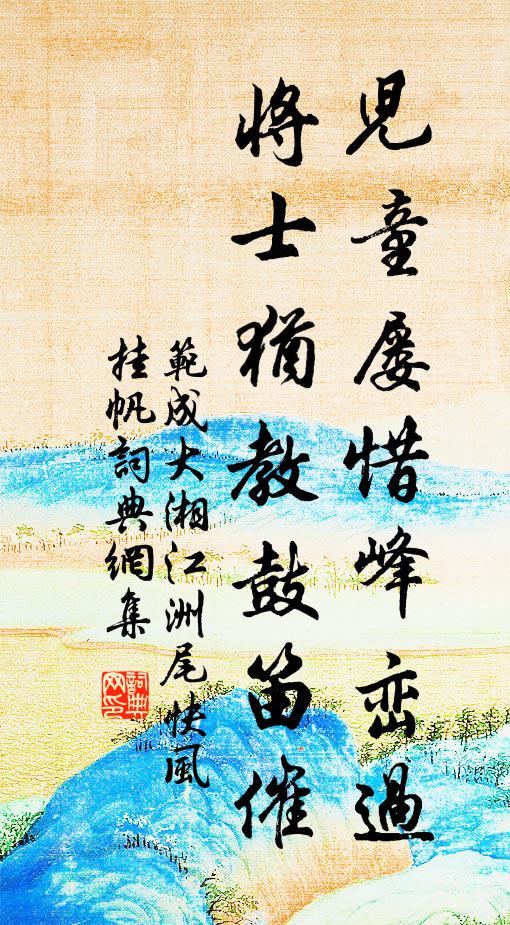 兒童屢惜峰巒過
將士猶教鼓笛催
範成大湘江洲尾快風
挂帆詞典網集
詞典网印